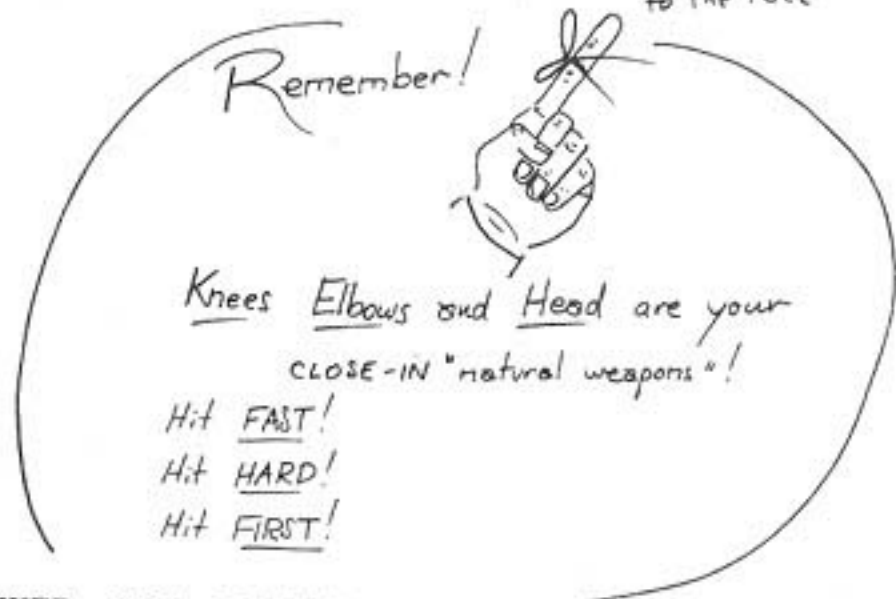 to the
Remember!
Knees Elbows and Head are your
CLOSE-IN "natural weapons"!
Hit FAST!
Hit HARD!
Hit FIRST!